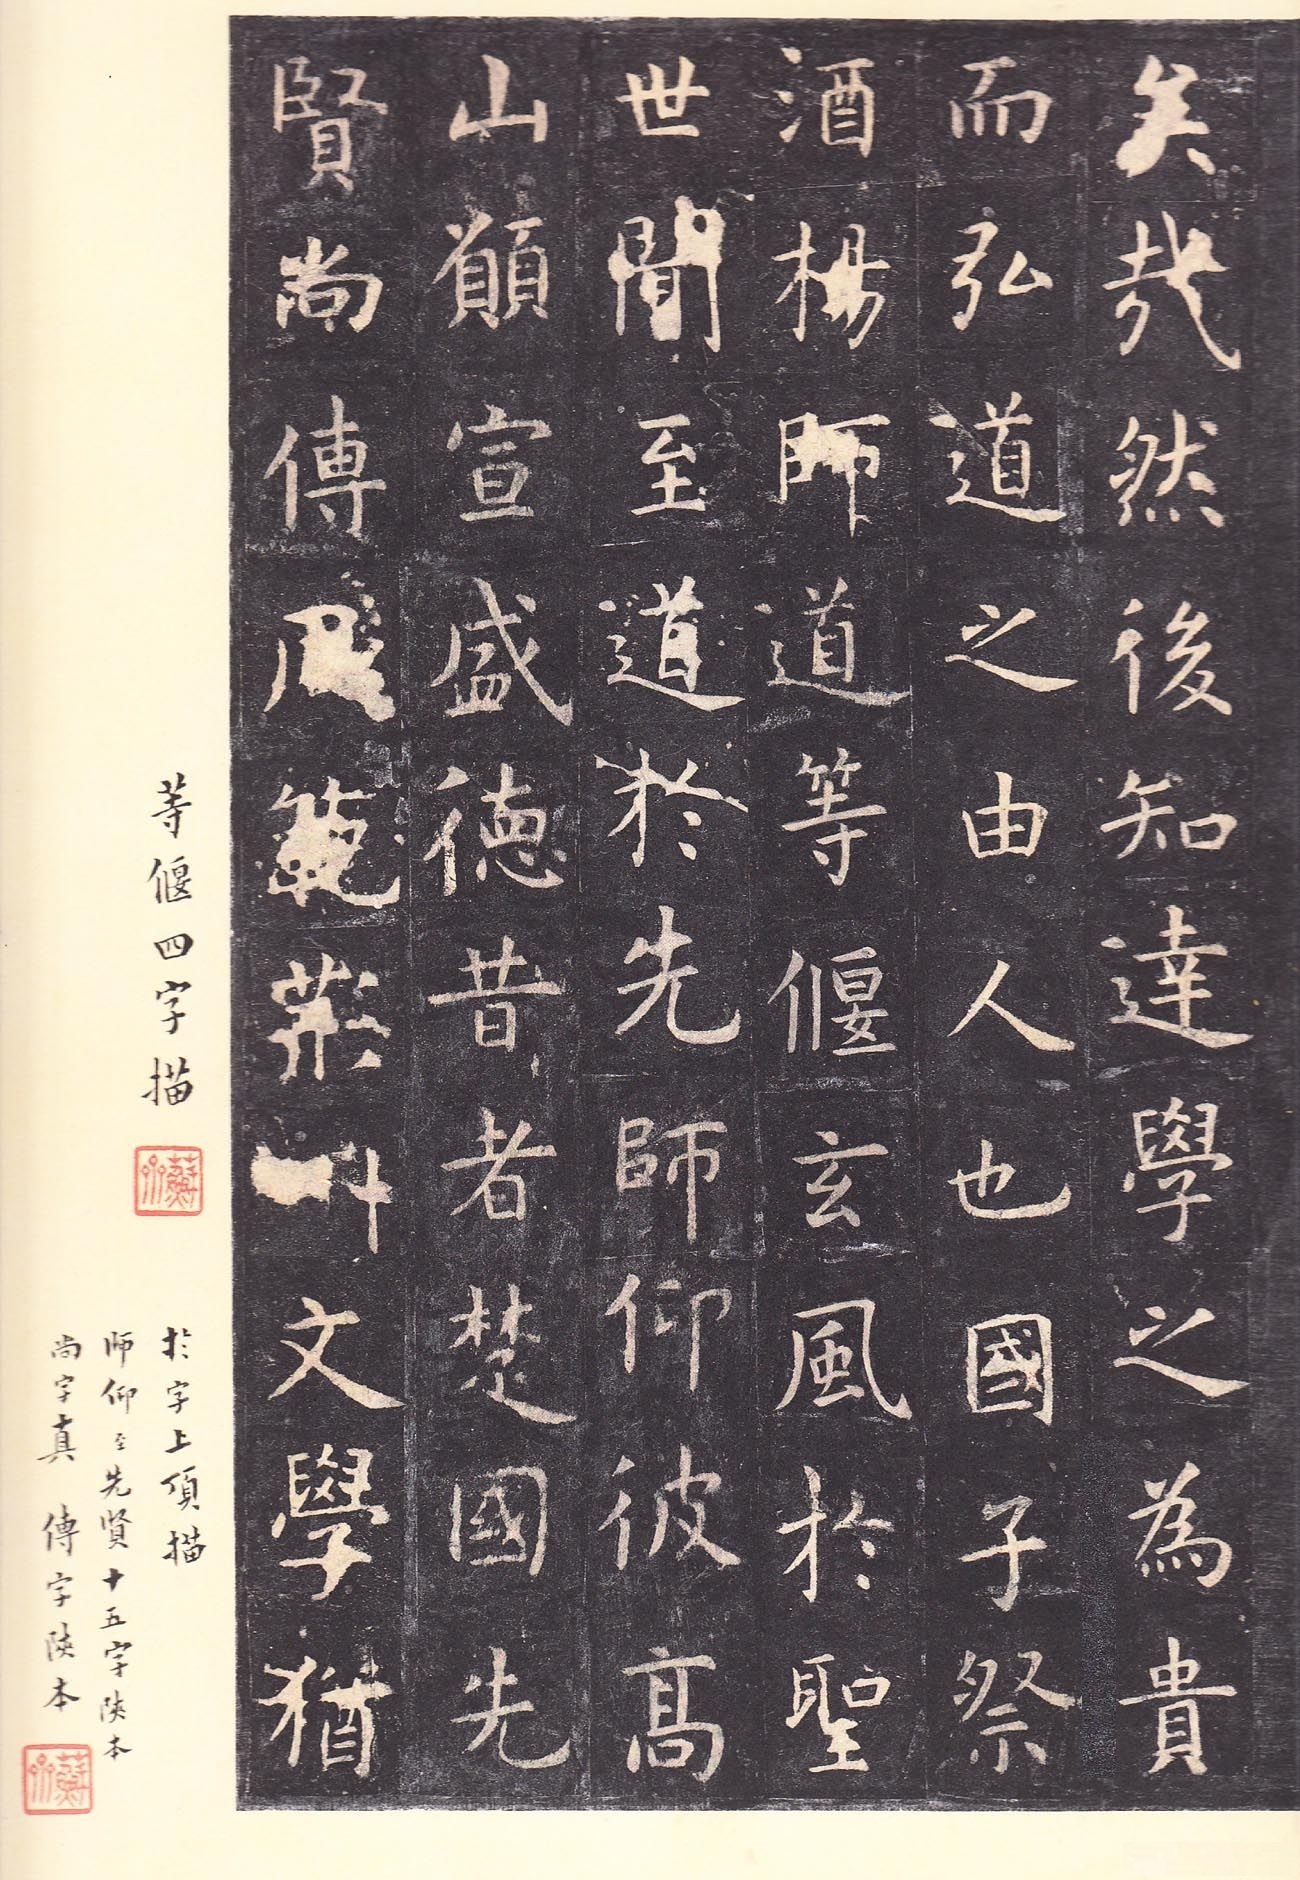 矣哉然後知達學之為貴
而弘道之由人也國子祭
酒楊師道等偃玄風於聖
世聞至道於先師仰彼高
山願宣盛德昔者楚國先
賢尚傳風範荊州文學猶
等偃四字描
於字上頂描
师仰至先賢十五字陝本
尚字真 傳字陝本